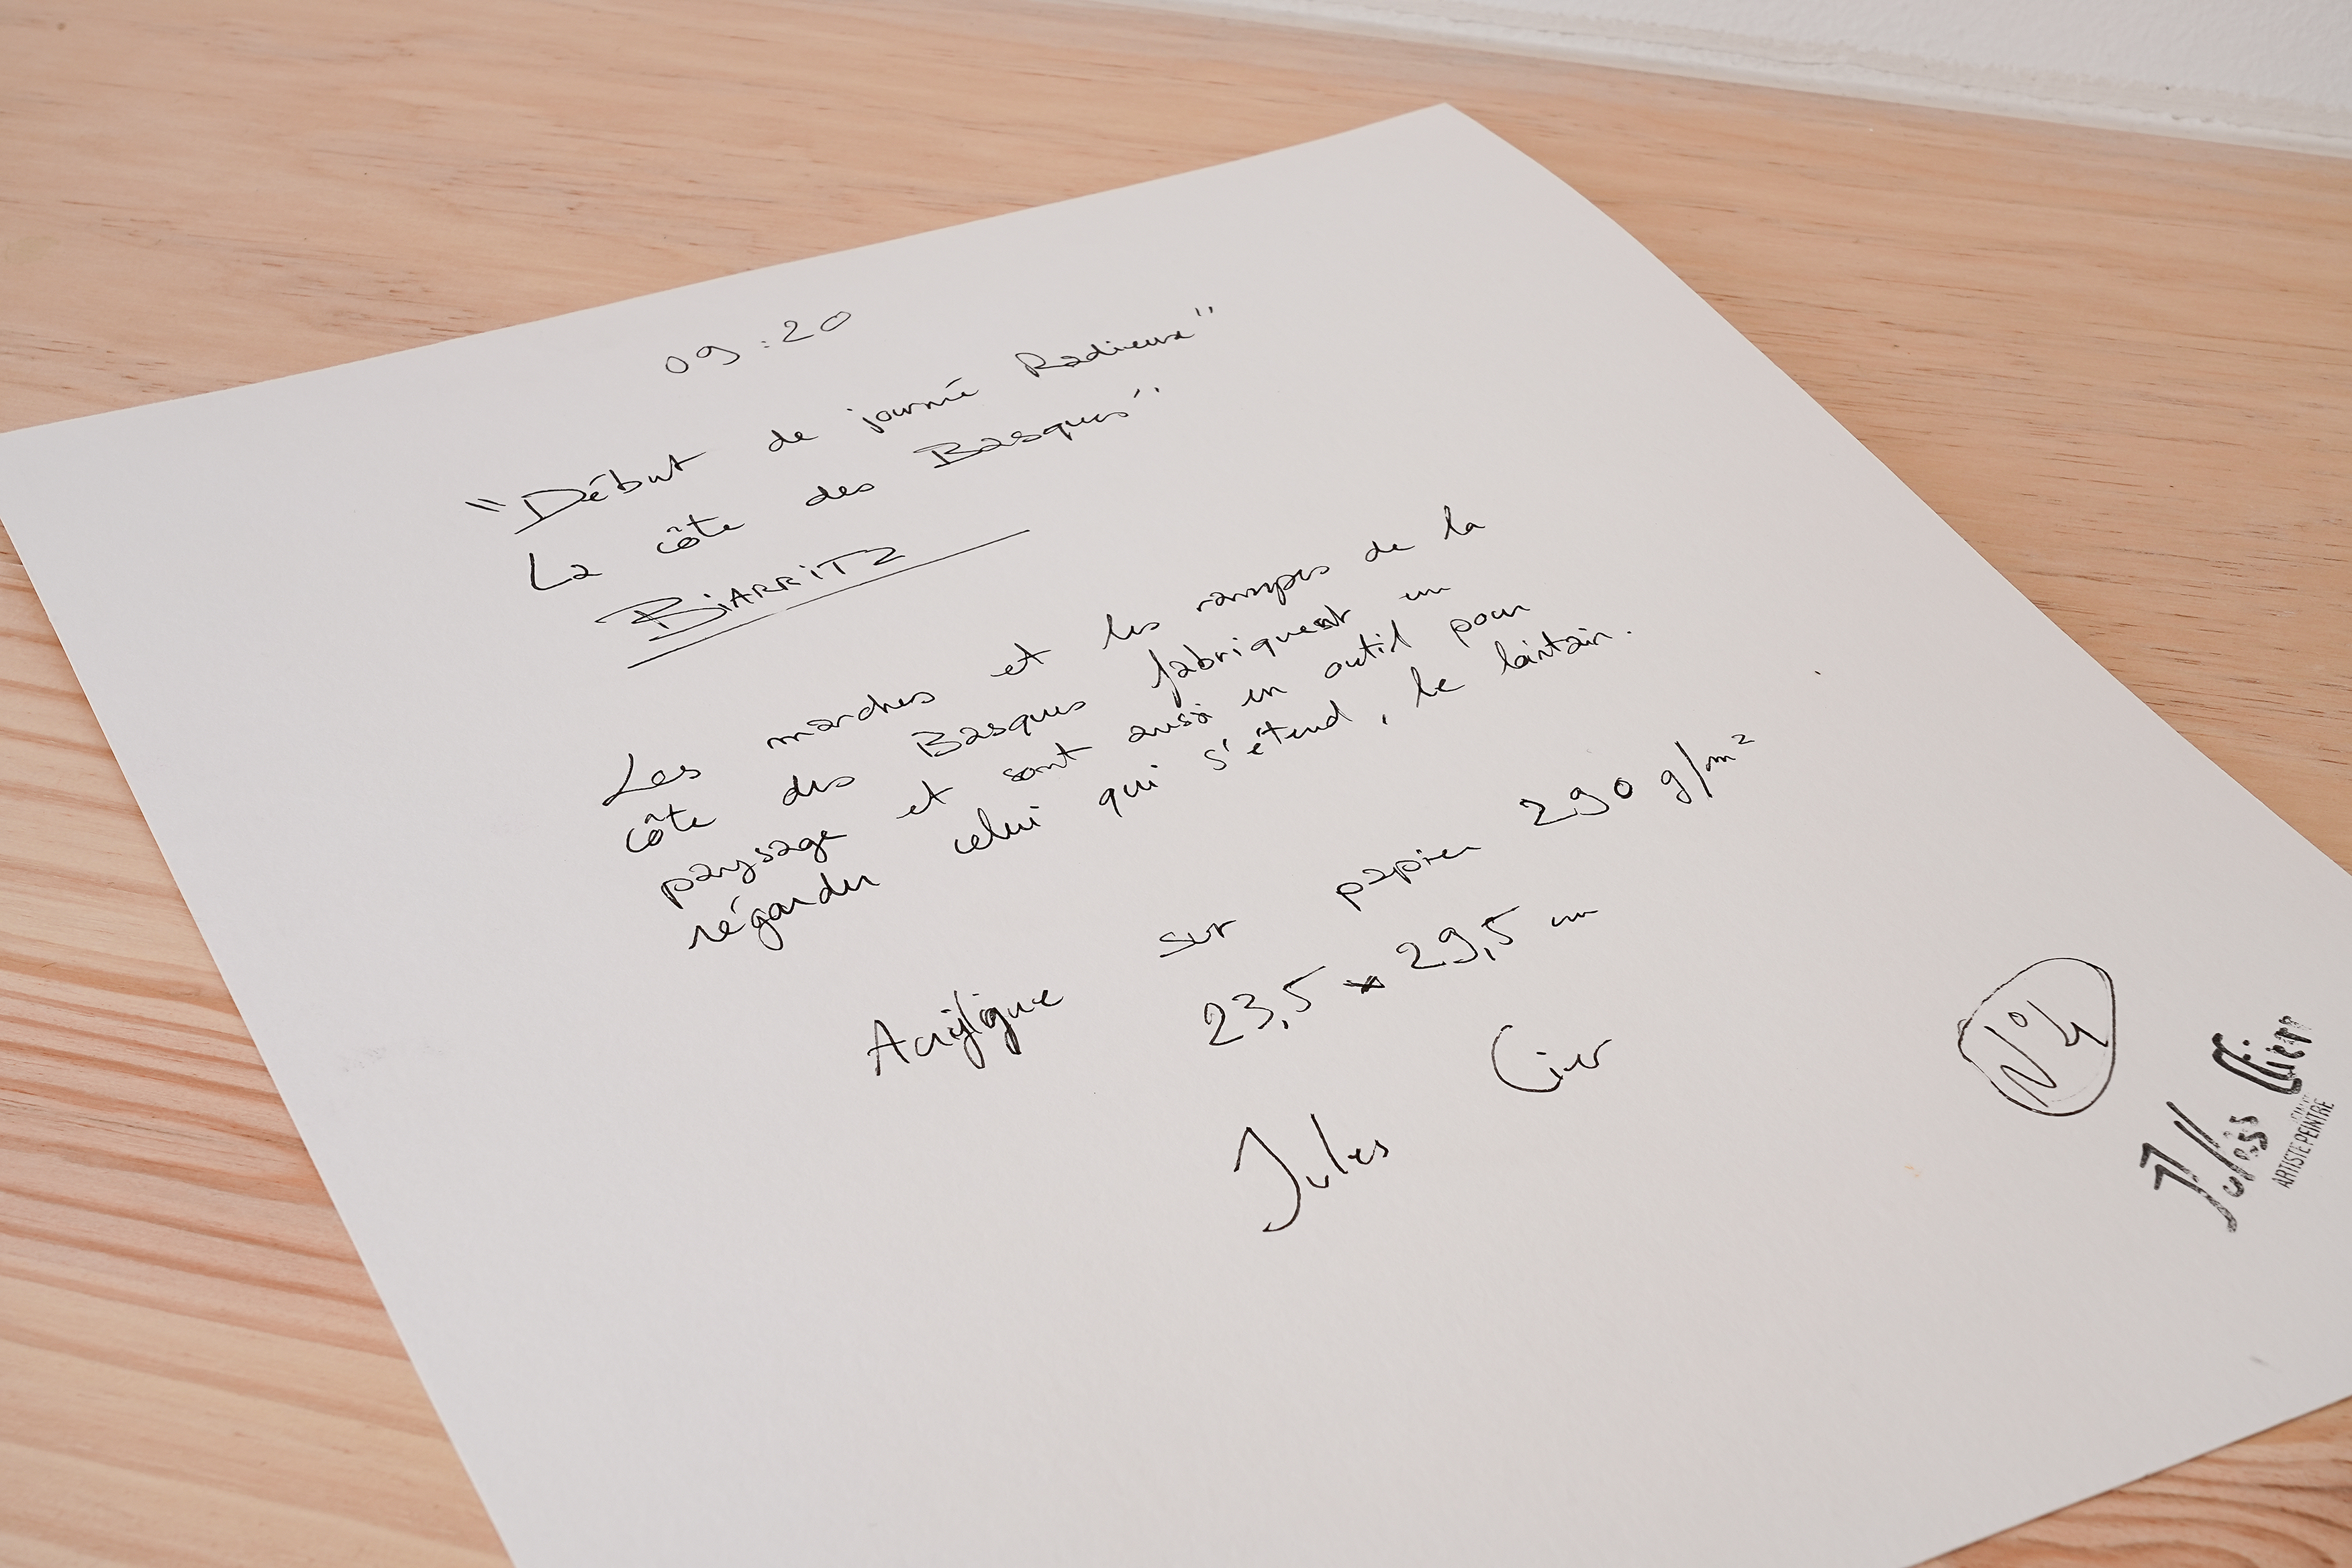 09:20
"Début de journé Radieux"
La côte des Basques"
BiARRiTZ
Les marches et les rampes de la
côte des Basques fabriquent un
paysage et sont aussi un outil pour
régarder celui qui s'étend, le lointain.
Acrylique sur papier 290 g/m²
23,5 x 29,5 cm
Jules Cier
N°4
Jules Cier
ARTISTE PEINTRE